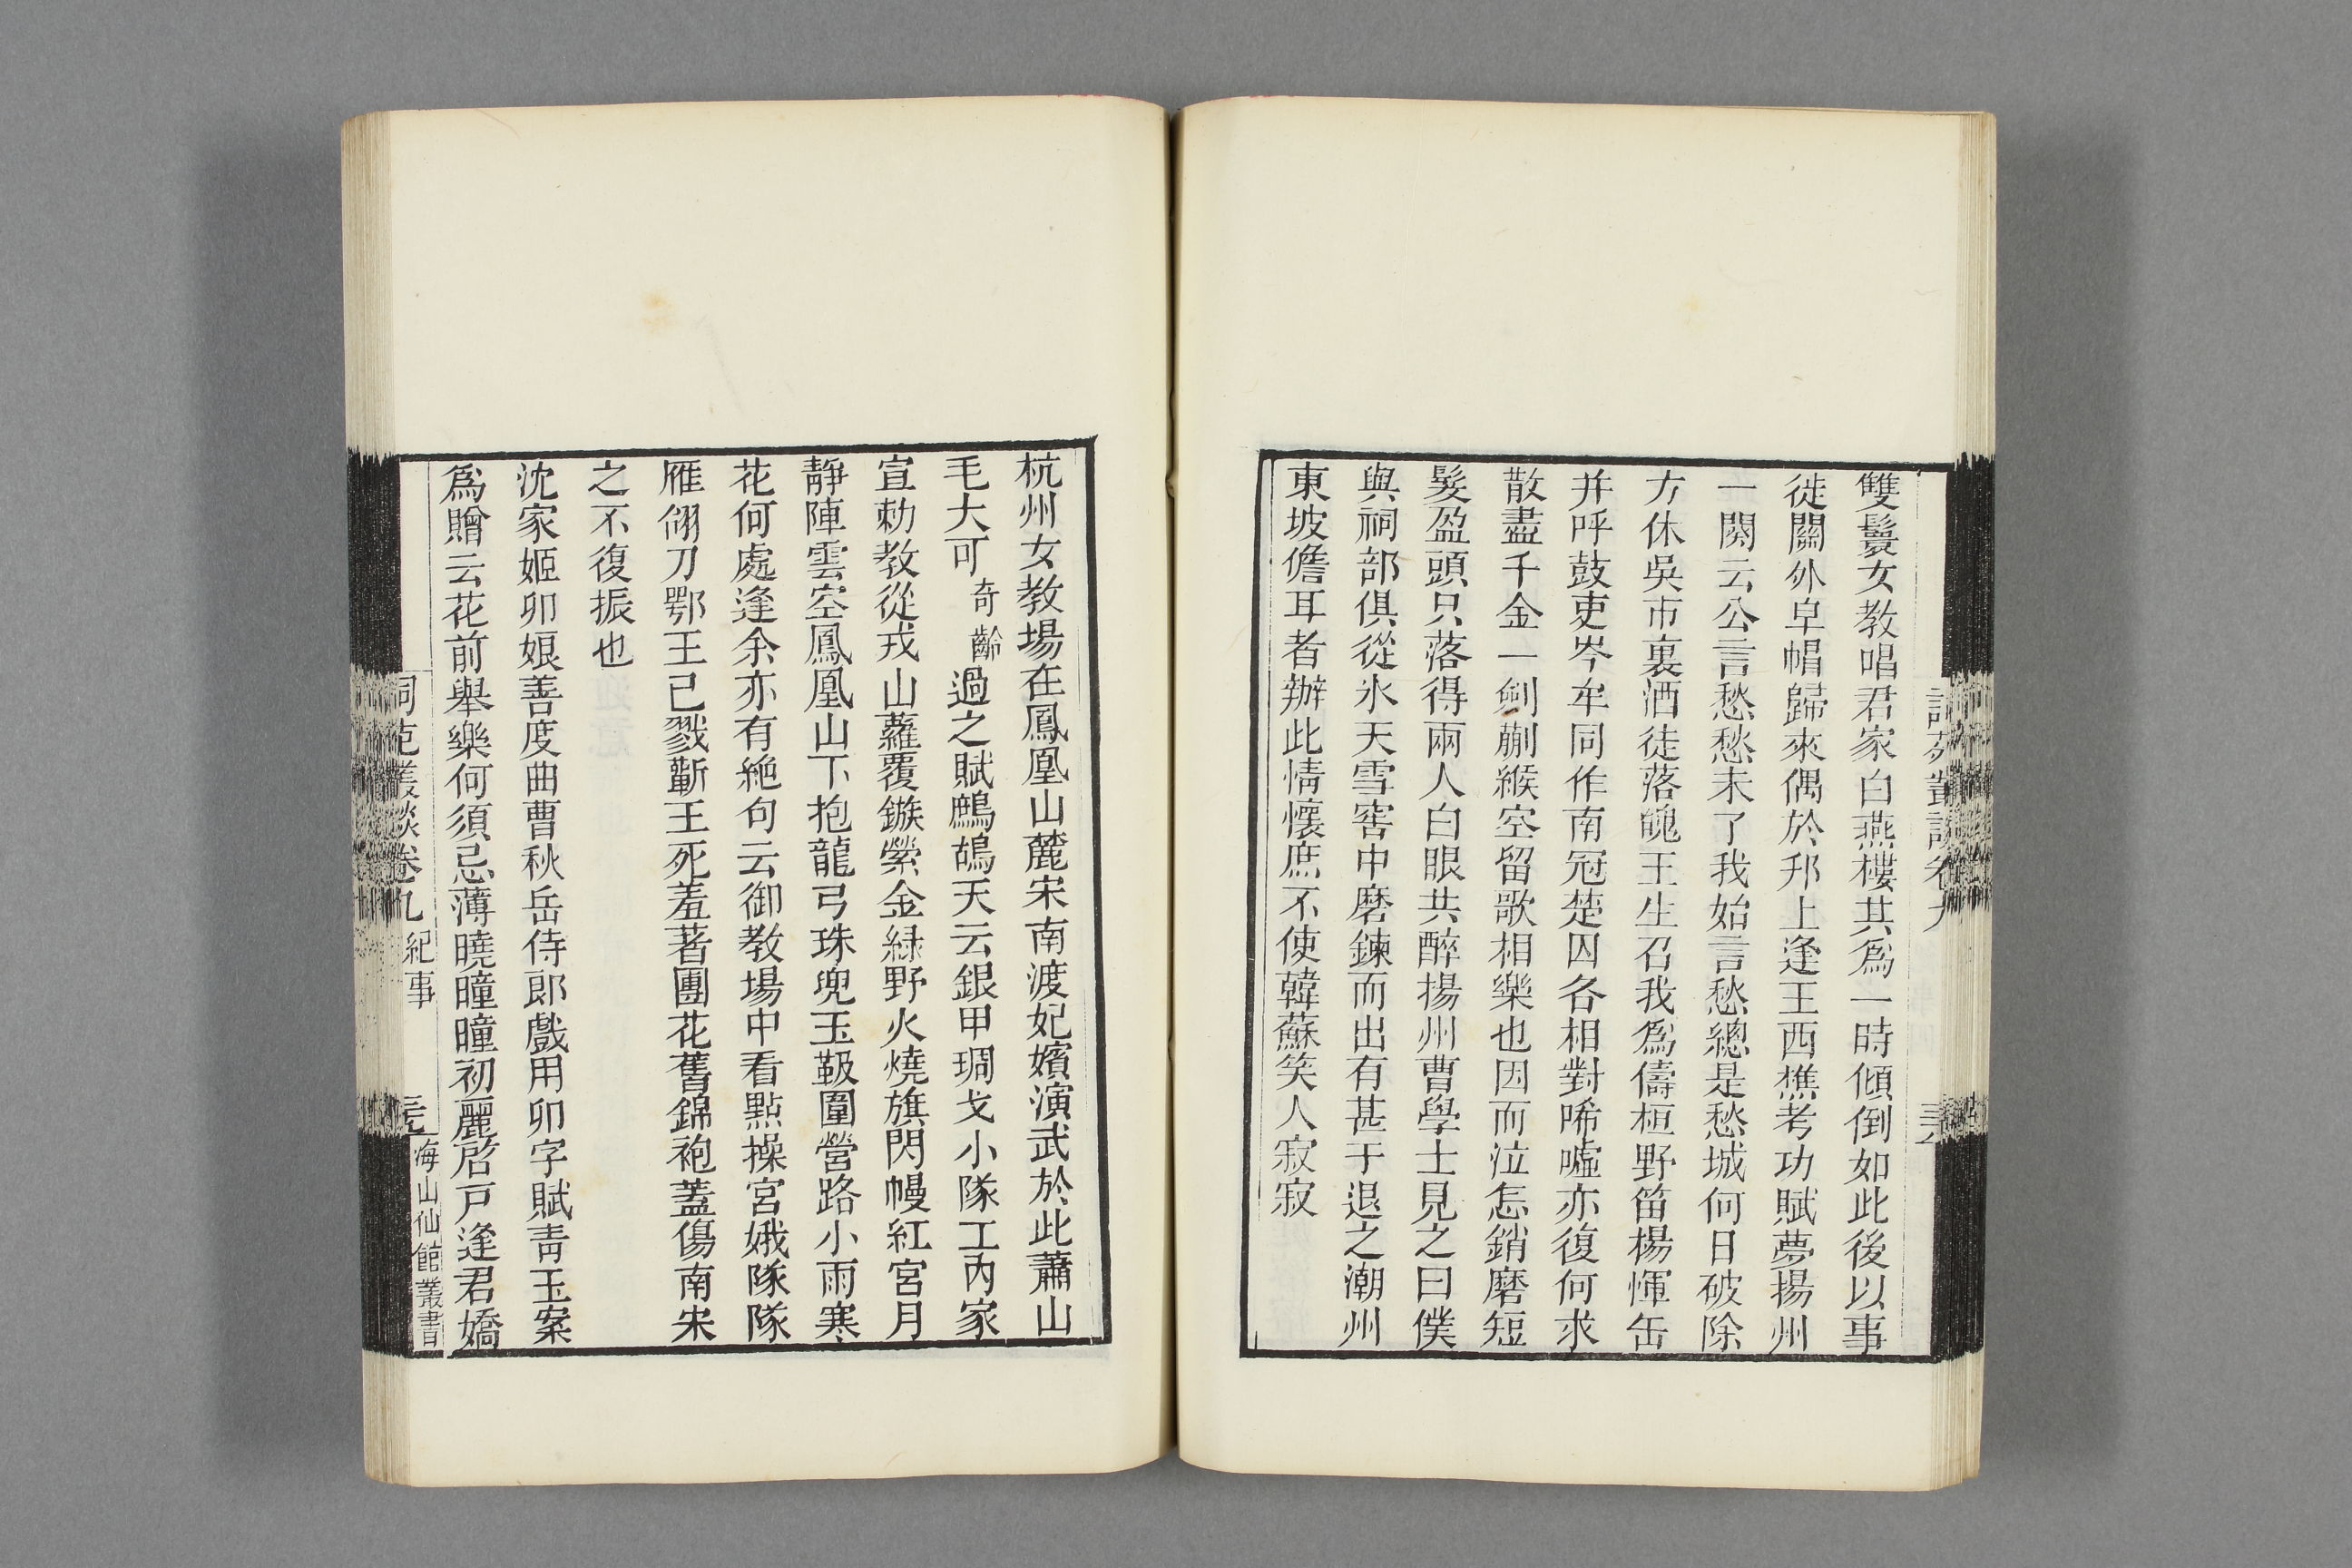 雙鬟女教唱君家白燕樓其爲一時傾倒如此後以事
徙關外皁帽歸來偶於邗上逢王西樵考功賦夢揚州
一闋云公言愁愁未了我始言愁總是愁城何日破除
方休吳市裏酒徒落魄王生召我爲儔桓野笛楊惲缶
并呼鼓吏岑牟同作南冠楚囚各相對唏噓亦復何求
散盡千金一劍蒯緱空留歌相樂也因而泣怎銷磨短
髮盈頭只落得兩人白眼共醉揚州曹學士見之曰僕
與祠部俱從氷天雪窖中磨鍊而出有甚于退之潮州
東坡儋耳者辦此情懷庶不使韓蘇笑人寂寂
杭州女教場在鳳凰山麓宋南渡妃嬪演武於此蕭山
毛大可奇齡過之賦鷓鴣天云銀甲琱戈小隊工內家
宣勅教從戎山蘿覆鏃縈金綠野火燒旗閃幔紅宮月
靜陣雲空鳳凰山下抱龍弓珠兜玉靸圍營路小雨寒
花何處逢余亦有絶句云御教場中看點操宮娥隊隊
雁翎刀鄂王已戮蘄王死羞著團花舊錦袍蓋傷南宋
之不復振也
沈家姬卯娘善度曲曹秋岳侍郎戲用卯字賦青玉案
爲贈云花前舉樂何須忌薄曉曈曈初麗啓戸逢君嬌
詞苑叢談卷九 紀事
海山仙館叢書